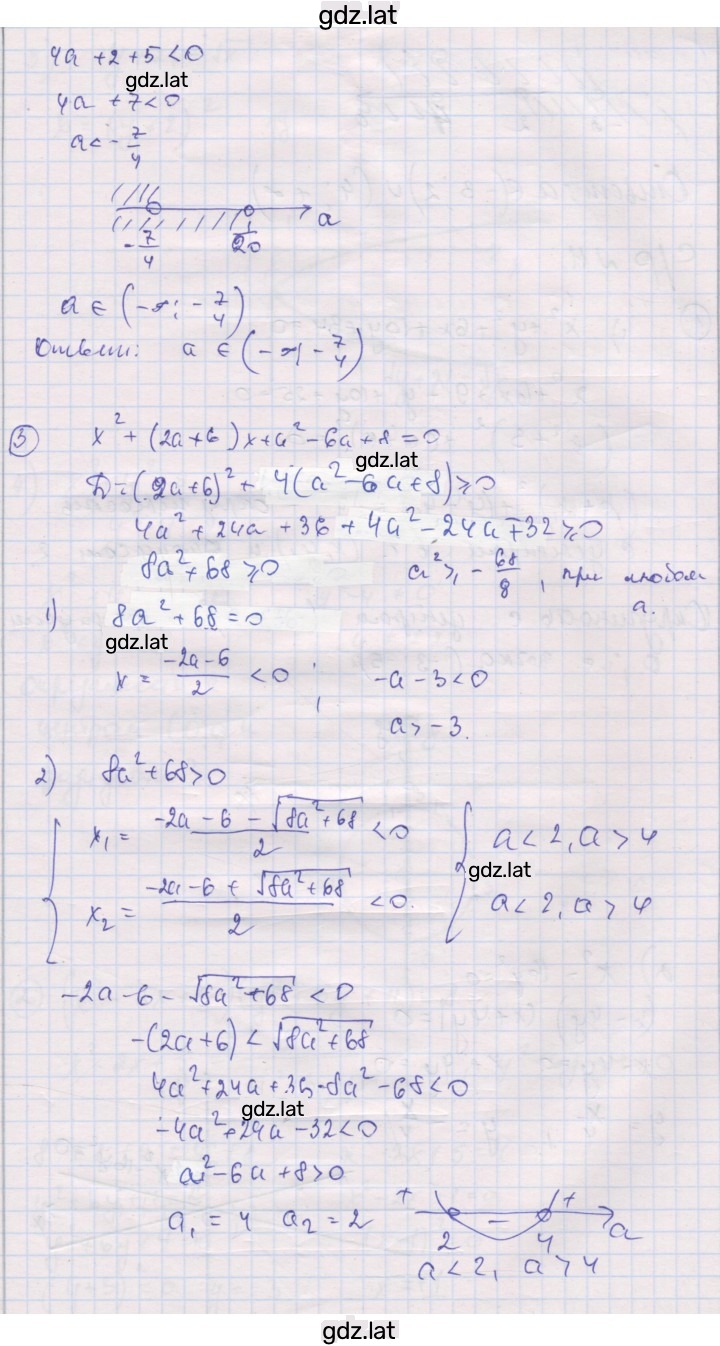 gdz.lat
4a + 2 + 5 < 0
gdz.lat
4a + 7 < 0
a < - 7/4
- 7/4 1/20 a
a ∈ (-∞; - 7/4)
Ответ: a ∈ (-∞; - 7/4)
③ x² + (2a+6)x + a² - 6a + 8 = 0
gdz.lat
D = (2a+6)² + 4(a² - 6a + 8) ≥ 0
4a² + 24a + 36 + 4a² - 24a + 32 ≥ 0
8a² + 68 ≥ 0 a² ≥ - 68/8, при любом a.
1) 8a² + 68 = 0
gdz.lat
x = (-2a-6)/2 < 0 ; -a - 3 < 0
a > -3.
2) 8a² + 68 > 0
{ x₁ = (-2a - 6 - √(8a² + 68))/2 < 0 { a < 2, a > 4
gdz.lat
x₂ = (-2a - 6 + √(8a² + 68))/2 < 0. a < 2, a > 4
-2a - 6 - √(8a² + 68) < 0
-(2a+6) < √(8a² + 68)
4a² + 24a + 36 - 8a² - 68 < 0
gdz.lat
-4a² + 24a - 32 < 0
a² - 6a + 8 > 0
a₁ = 4 a₂ = 2
+ - +
2 4 a
a < 2, a > 4
gdz.lat